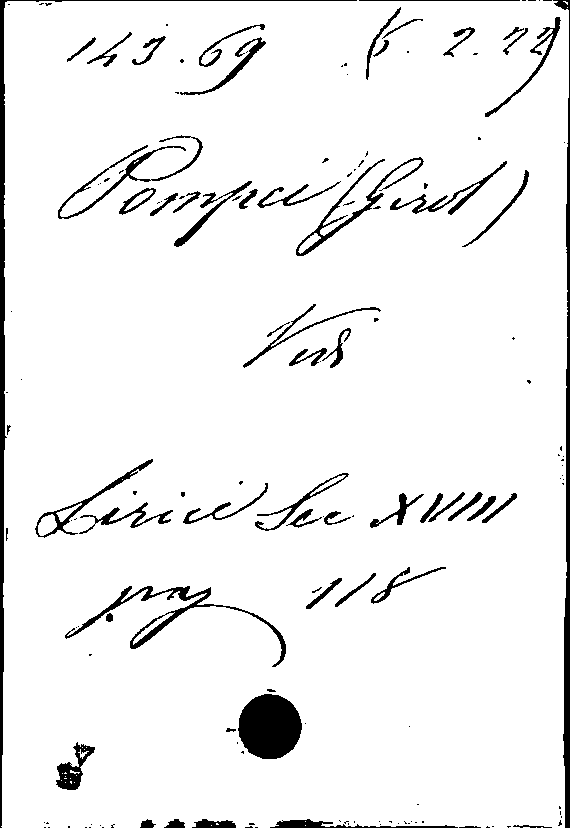 143.69 (V. 2. 22)
Pompei (Girol)
Versi
Lirici Sec XVIII
pag 118